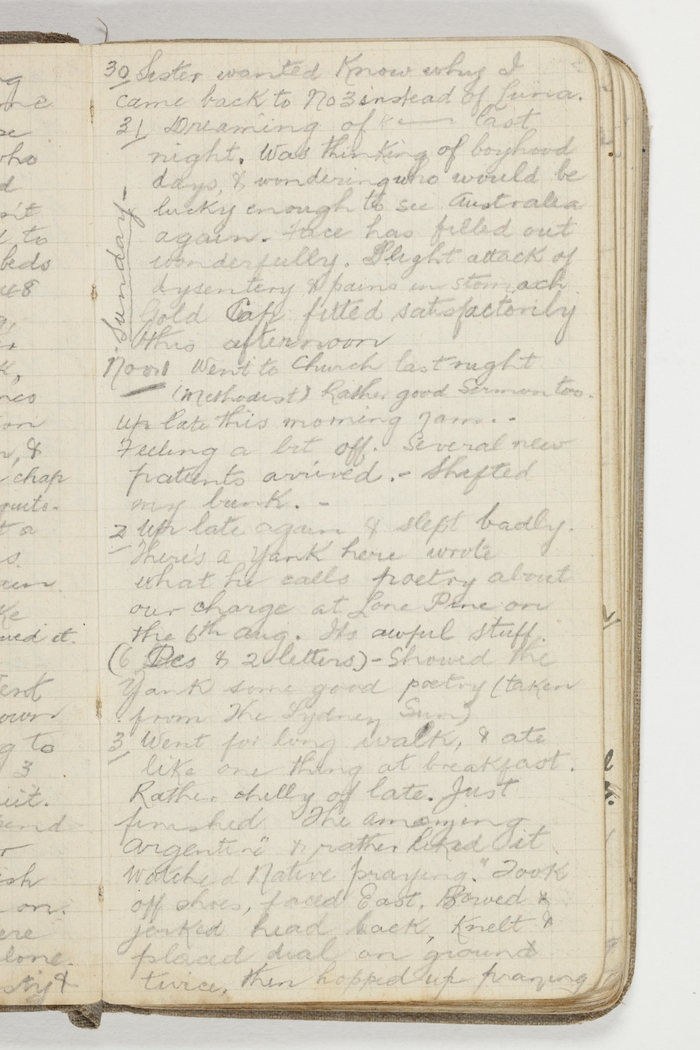 30 Sister wanted Know why I
came back to No 3 instead of Luna.
31 Dreaming of — last
night. Was thinking of boyhood
days, & wondering who would be
lucky enough to see Australia
again. Face has filled out
wonderfully. Slight attack of
dysentery & pains in stomach
Gold Cap fitted satisfactorily
this afternoon
Sunday-
Nov 1 Went to Church last night
(Methodist) Rather good Sermon too.
Up late this morning 7am. -
Feeling a bit off. Several new
patients arrived. - Shifted
my bunk. -
2 Up late again & slept badly.
There's a Yank here wrote
what he calls poetry about
our charge at Lone Pine on
the 6th Aug. Its awful stuff.
(6 Pcs & 2 letters) - Showed the
Yank some good poetry (taken
from The Sydney Sun)
3 Went for long walk, & ate
like one thing at breakfast.
Rather chilly of late. Just
finished "The amazing
Argentine" & rather liked it
Watched Native praying." Took
off shoes, faced East, Bowed &
jerked head back, Knelt &
placed dial on ground
twice, then hopped up praying